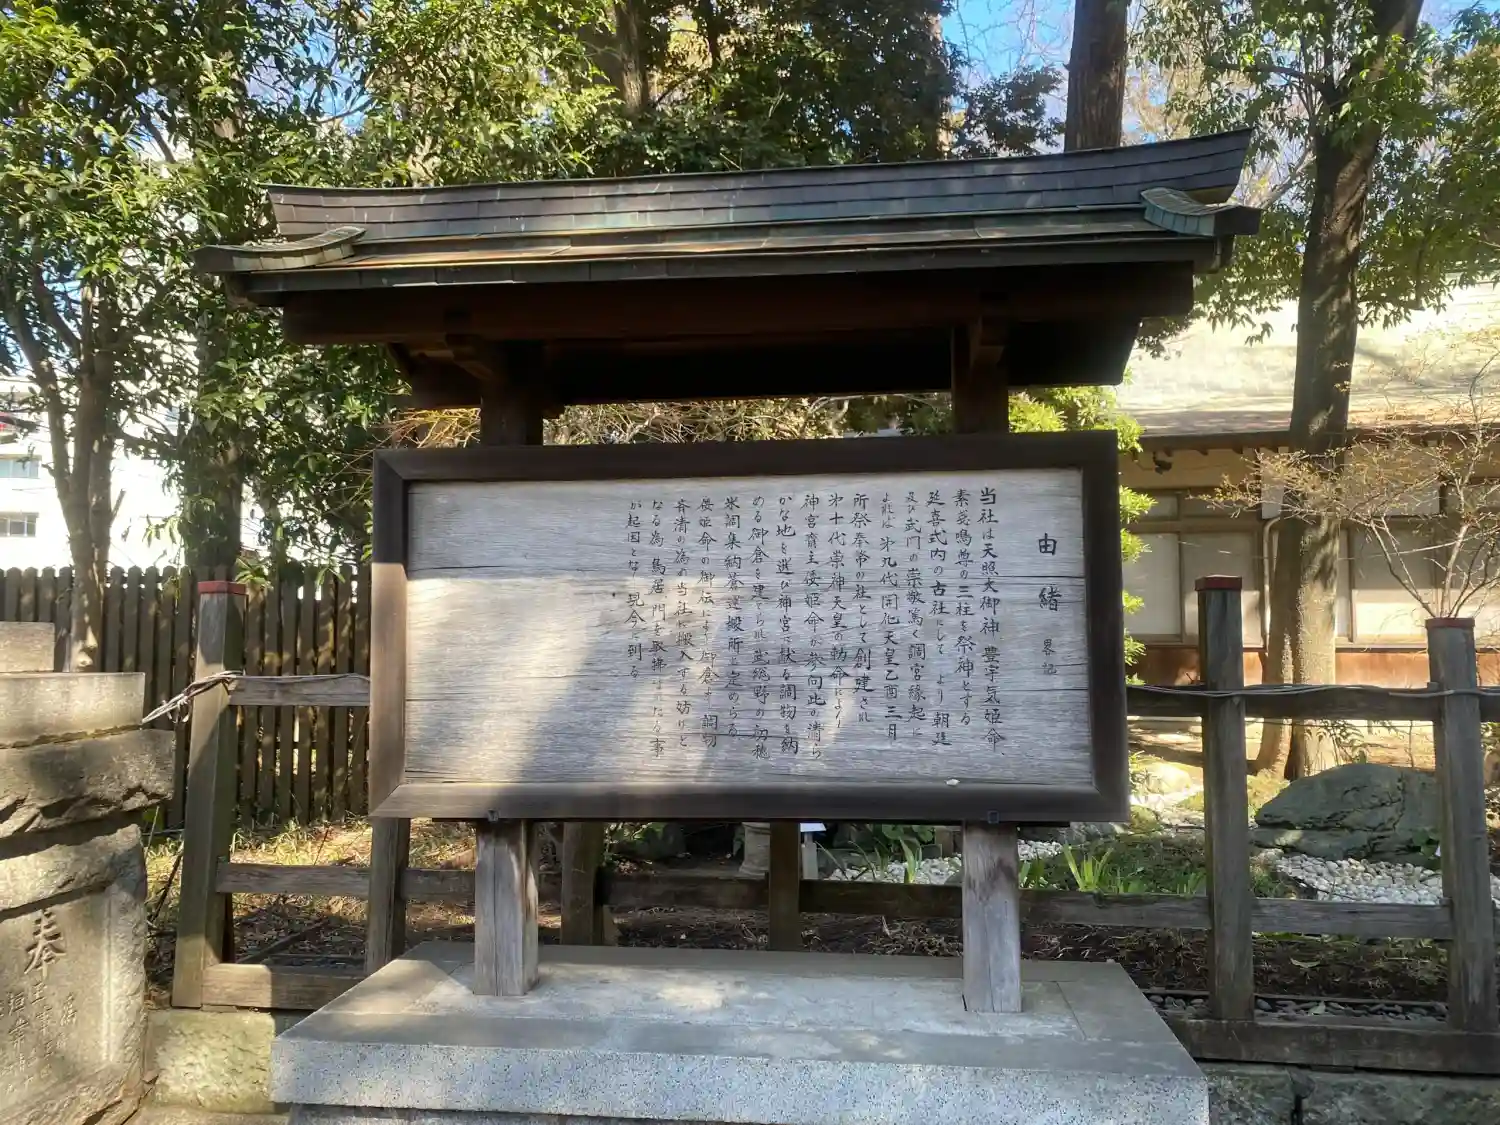 由緒 畧記
当社は天照大御神、豊宇気姫命、
素戔鳴尊の三柱を祭神とする
延喜式内の古社にして より朝廷
及び武門の崇敬篤く調宮縁起に
よれば 第九代開化天皇乙酉三月
所祭奉幣の社として創建され
第十代崇神天皇の勅命により
神宮斎主倭姫命が参向此の清ら
かな地を選び神宮に献る調物を納
める御倉を建てられ武総野の初穂
米調集納蒼運搬所と定めらる
倭姫命の御伝により御倉より調物
斉清の為め当社に搬入する妨げと
なる為 鳥居 門を取拂はたる事
が起因となり現今に到る
奉